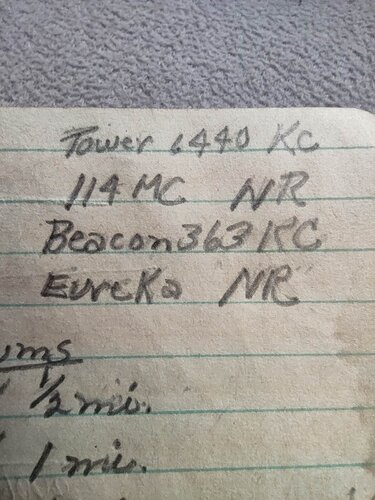 Tower 6440 Kc
114 MC NR
Beacon 363 KC
EureKa NR
ums
1/2 mi.
1 mi.